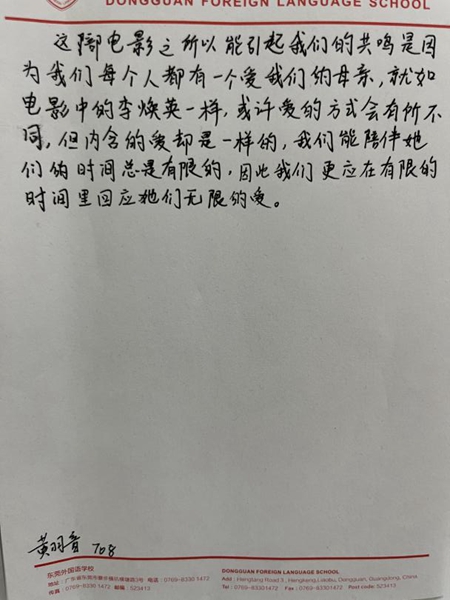 DONGGUAN FOREIGN LANGUAGE SCHOOL
这部电影之所以能引起我们的共鸣是因
为我们每个人都有一个爱我们的母亲，就如
电影中的李焕英一样，或许爱的方式会有所不
同，但内含的爱却是一样的，我们能陪伴她
们的时间总是有限的，因此我们更应在有限的
时间里回应她们无限的爱。
黄羽音 708
东莞外国语学校
电话：0769-8330 1472
邮编：523413
DONGGUAN FOREIGN LANGUAGE SCHOOL
Add : Hengtang Road 3, Hengkeng, Liaobu, Dongguan, Guangdong, China
Tel : 0769-83301472 Fax : 0769-83301472 Post code: 523413